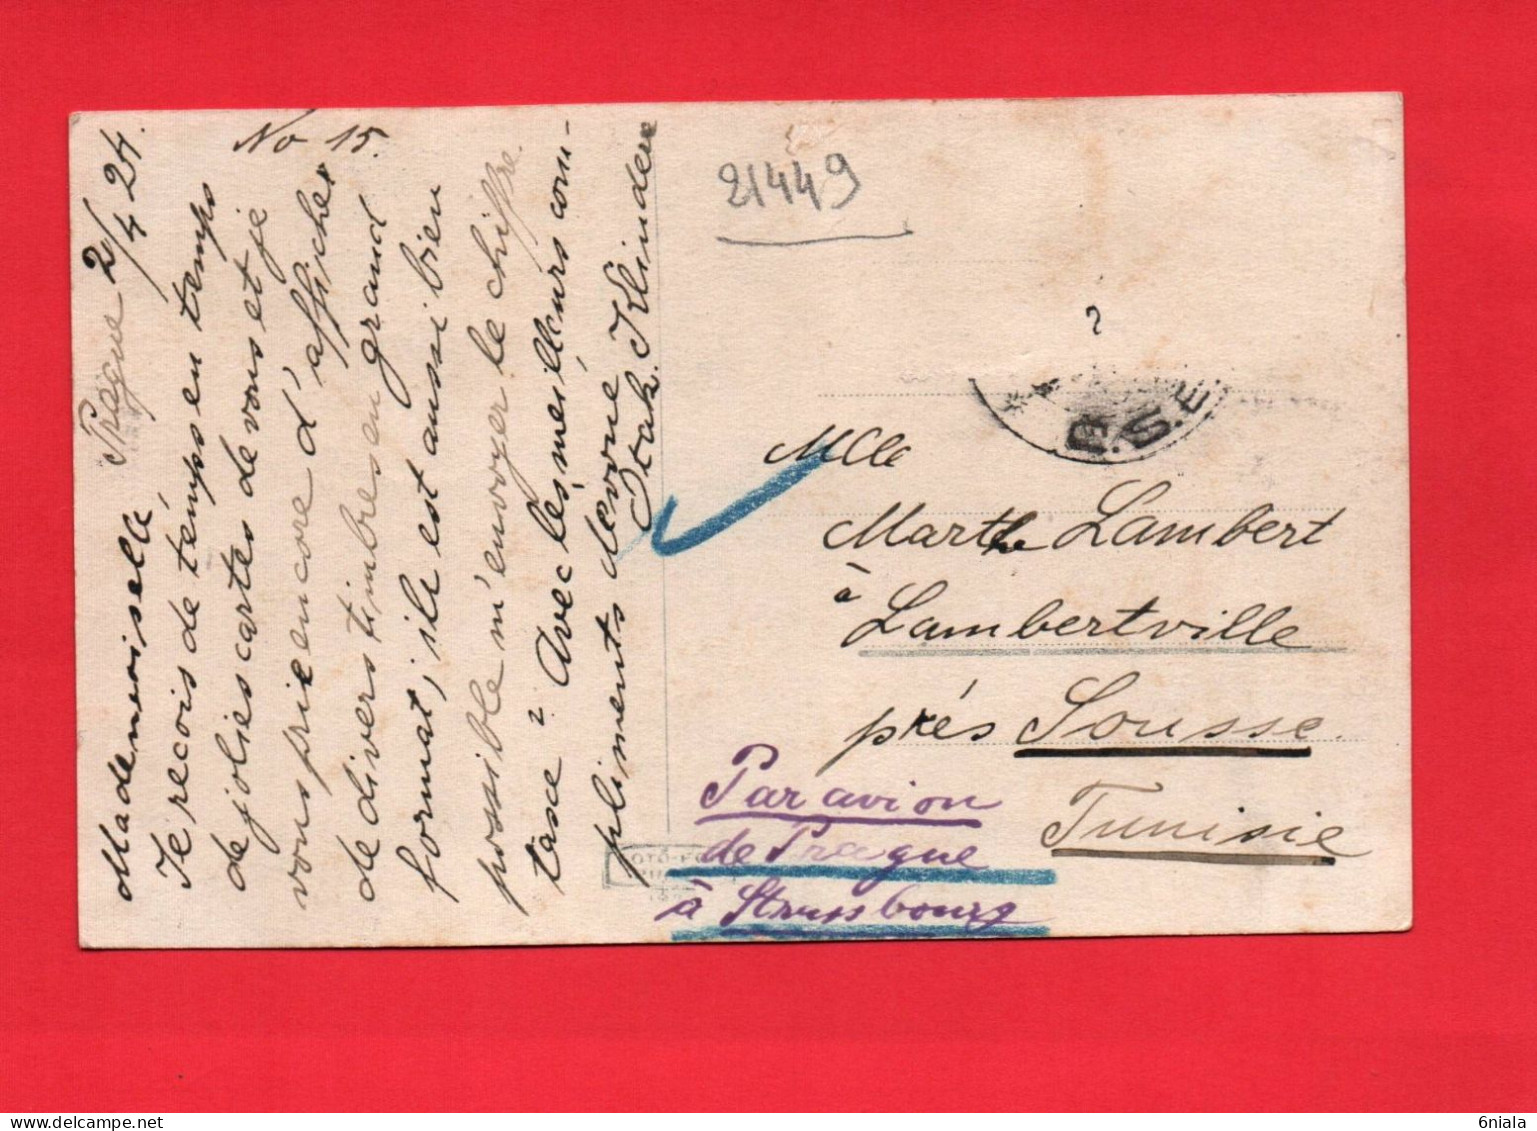 No 15.
Prague 2/4 24.
Mademoiselle
Je reçois de temps en temps
de jolies cartes de vous et je
vous prie encore d'afficher
de divers timbres en grand
format, s'ile est aussi bien
possible m'envoyer le chiffre
tasce? Avec les meilleurs com-
pliments devoué
Klinder
21449
?
R.S.E
Mlle
Marthe Lambert
à
Lambertville
prés Sousse.
Tunisie
Par avion
de Prague
à Strasbourg
6niala